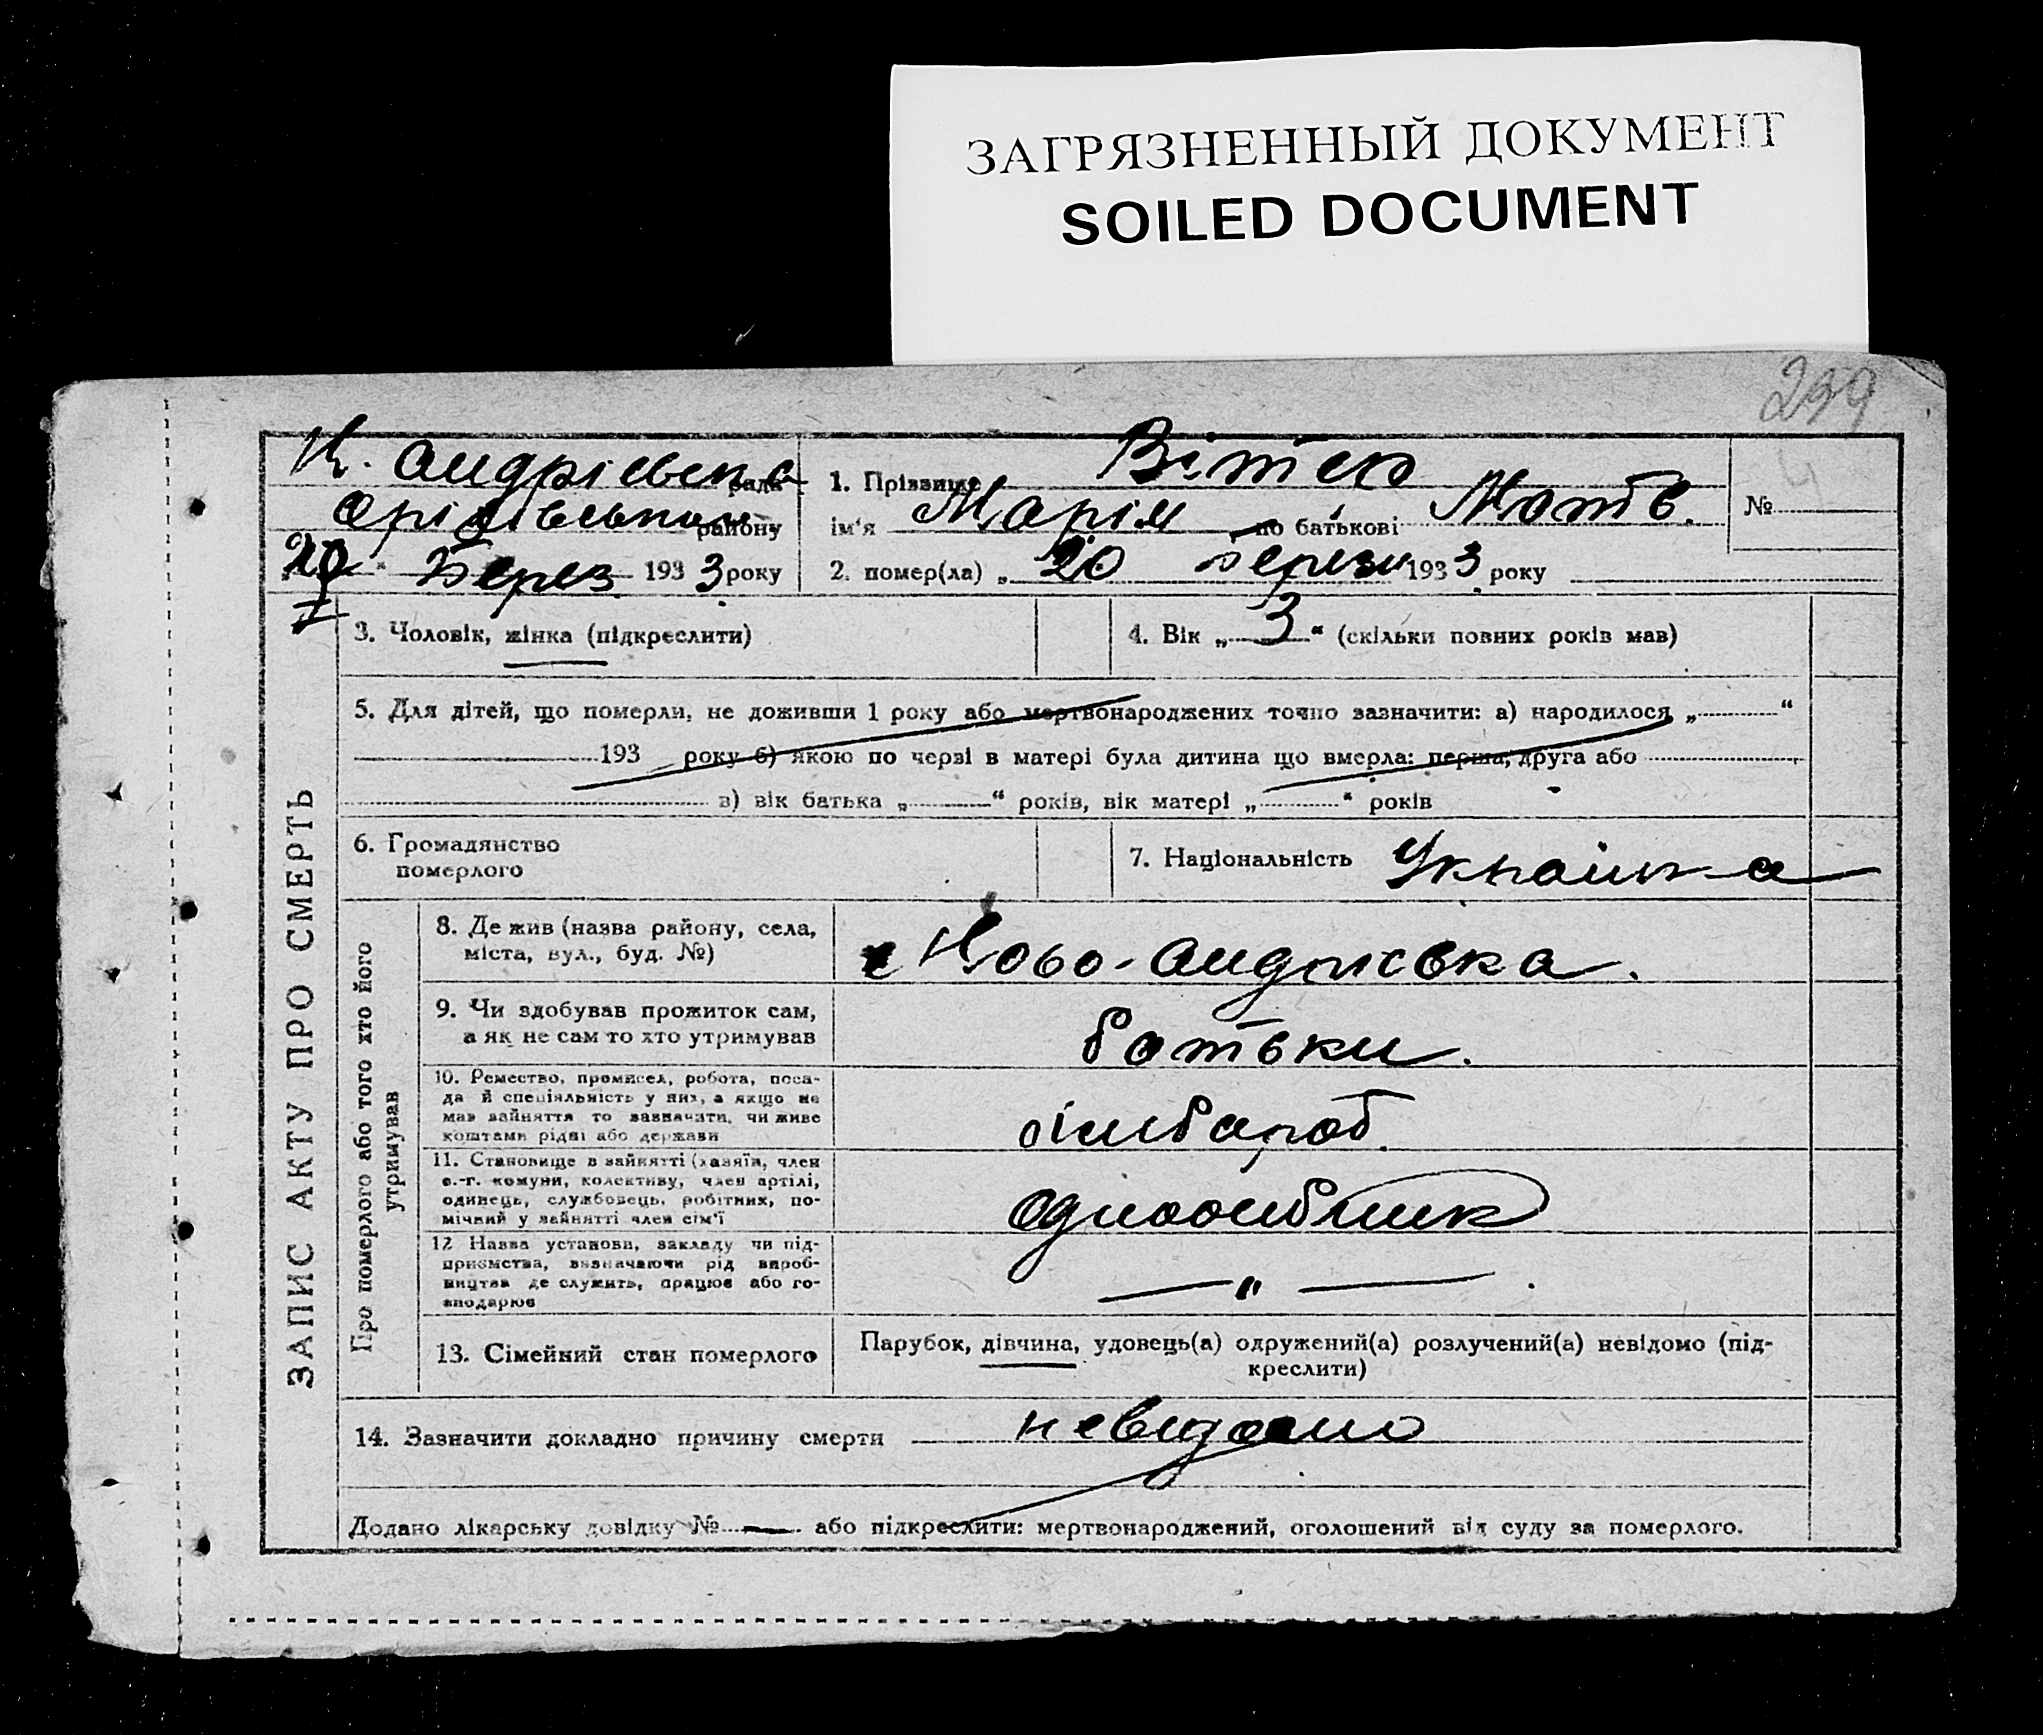 ЗАГРЯЗНЕННЫЙ ДОКУМЕНТ
SOILED DOCUMENT
299
Н. Андріевська рада
району
20 Берез 1933 року
1. Прізвище Вітко
ім'я Марія по батькові Матв.
№
2. помер(ла) „ 20 березня 1933 року
ЗАПИС АКТУ ПРО СМЕРТЬ
3. Чоловік, жінка (підкреслити)
4. Вік „ 3 “ (скільки повних років мав)
5. Для дітей, що померли, не доживши 1 року або мертвонароджених точно зазначити: а) народилося „ “
193 року б) якою по черзі в матері була дитина що вмерла: перша, друга або
в) вік батька „ “ років, вік матері „ “ років
6. Громадянство
померлого
7. Національність Українка
Про померлого або того хто його
утримував
8. Де жив (назва району, села,
міста, вул., буд. №)
с Ново-Андріевка.
9. Чи здобував прожиток сам,
а як не сам то хто утримував
батьки.
10. Ремество, промисел, робота, поса-
да й спеціяльність у них, а якщо не
мав зайняття то зазначити, чи живе
коштами рідні або держави
11. Становище в зайнятті (хазяїн, член
с.-г. комуни, колективу, член артілі,
одинець, службовець, робітник, по-
мічний у зайнятті член сім'ї
одноосібник
12 Назва установи, закладу чи під-
приємства, визначаючи рід вироб-
ництва де служить, працює або го-
сподарює
— „ — .
13. Сімейний стан померлого
Парубок, дівчина, удовець(а) одружений(а) розлучений(а) невідомо (під-
креслити)
14. Зазначити докладно причину смерти невидомо
Додано лікарську довідку № — або підкреслити: мертвонароджений, оголошений від суду за померлого.